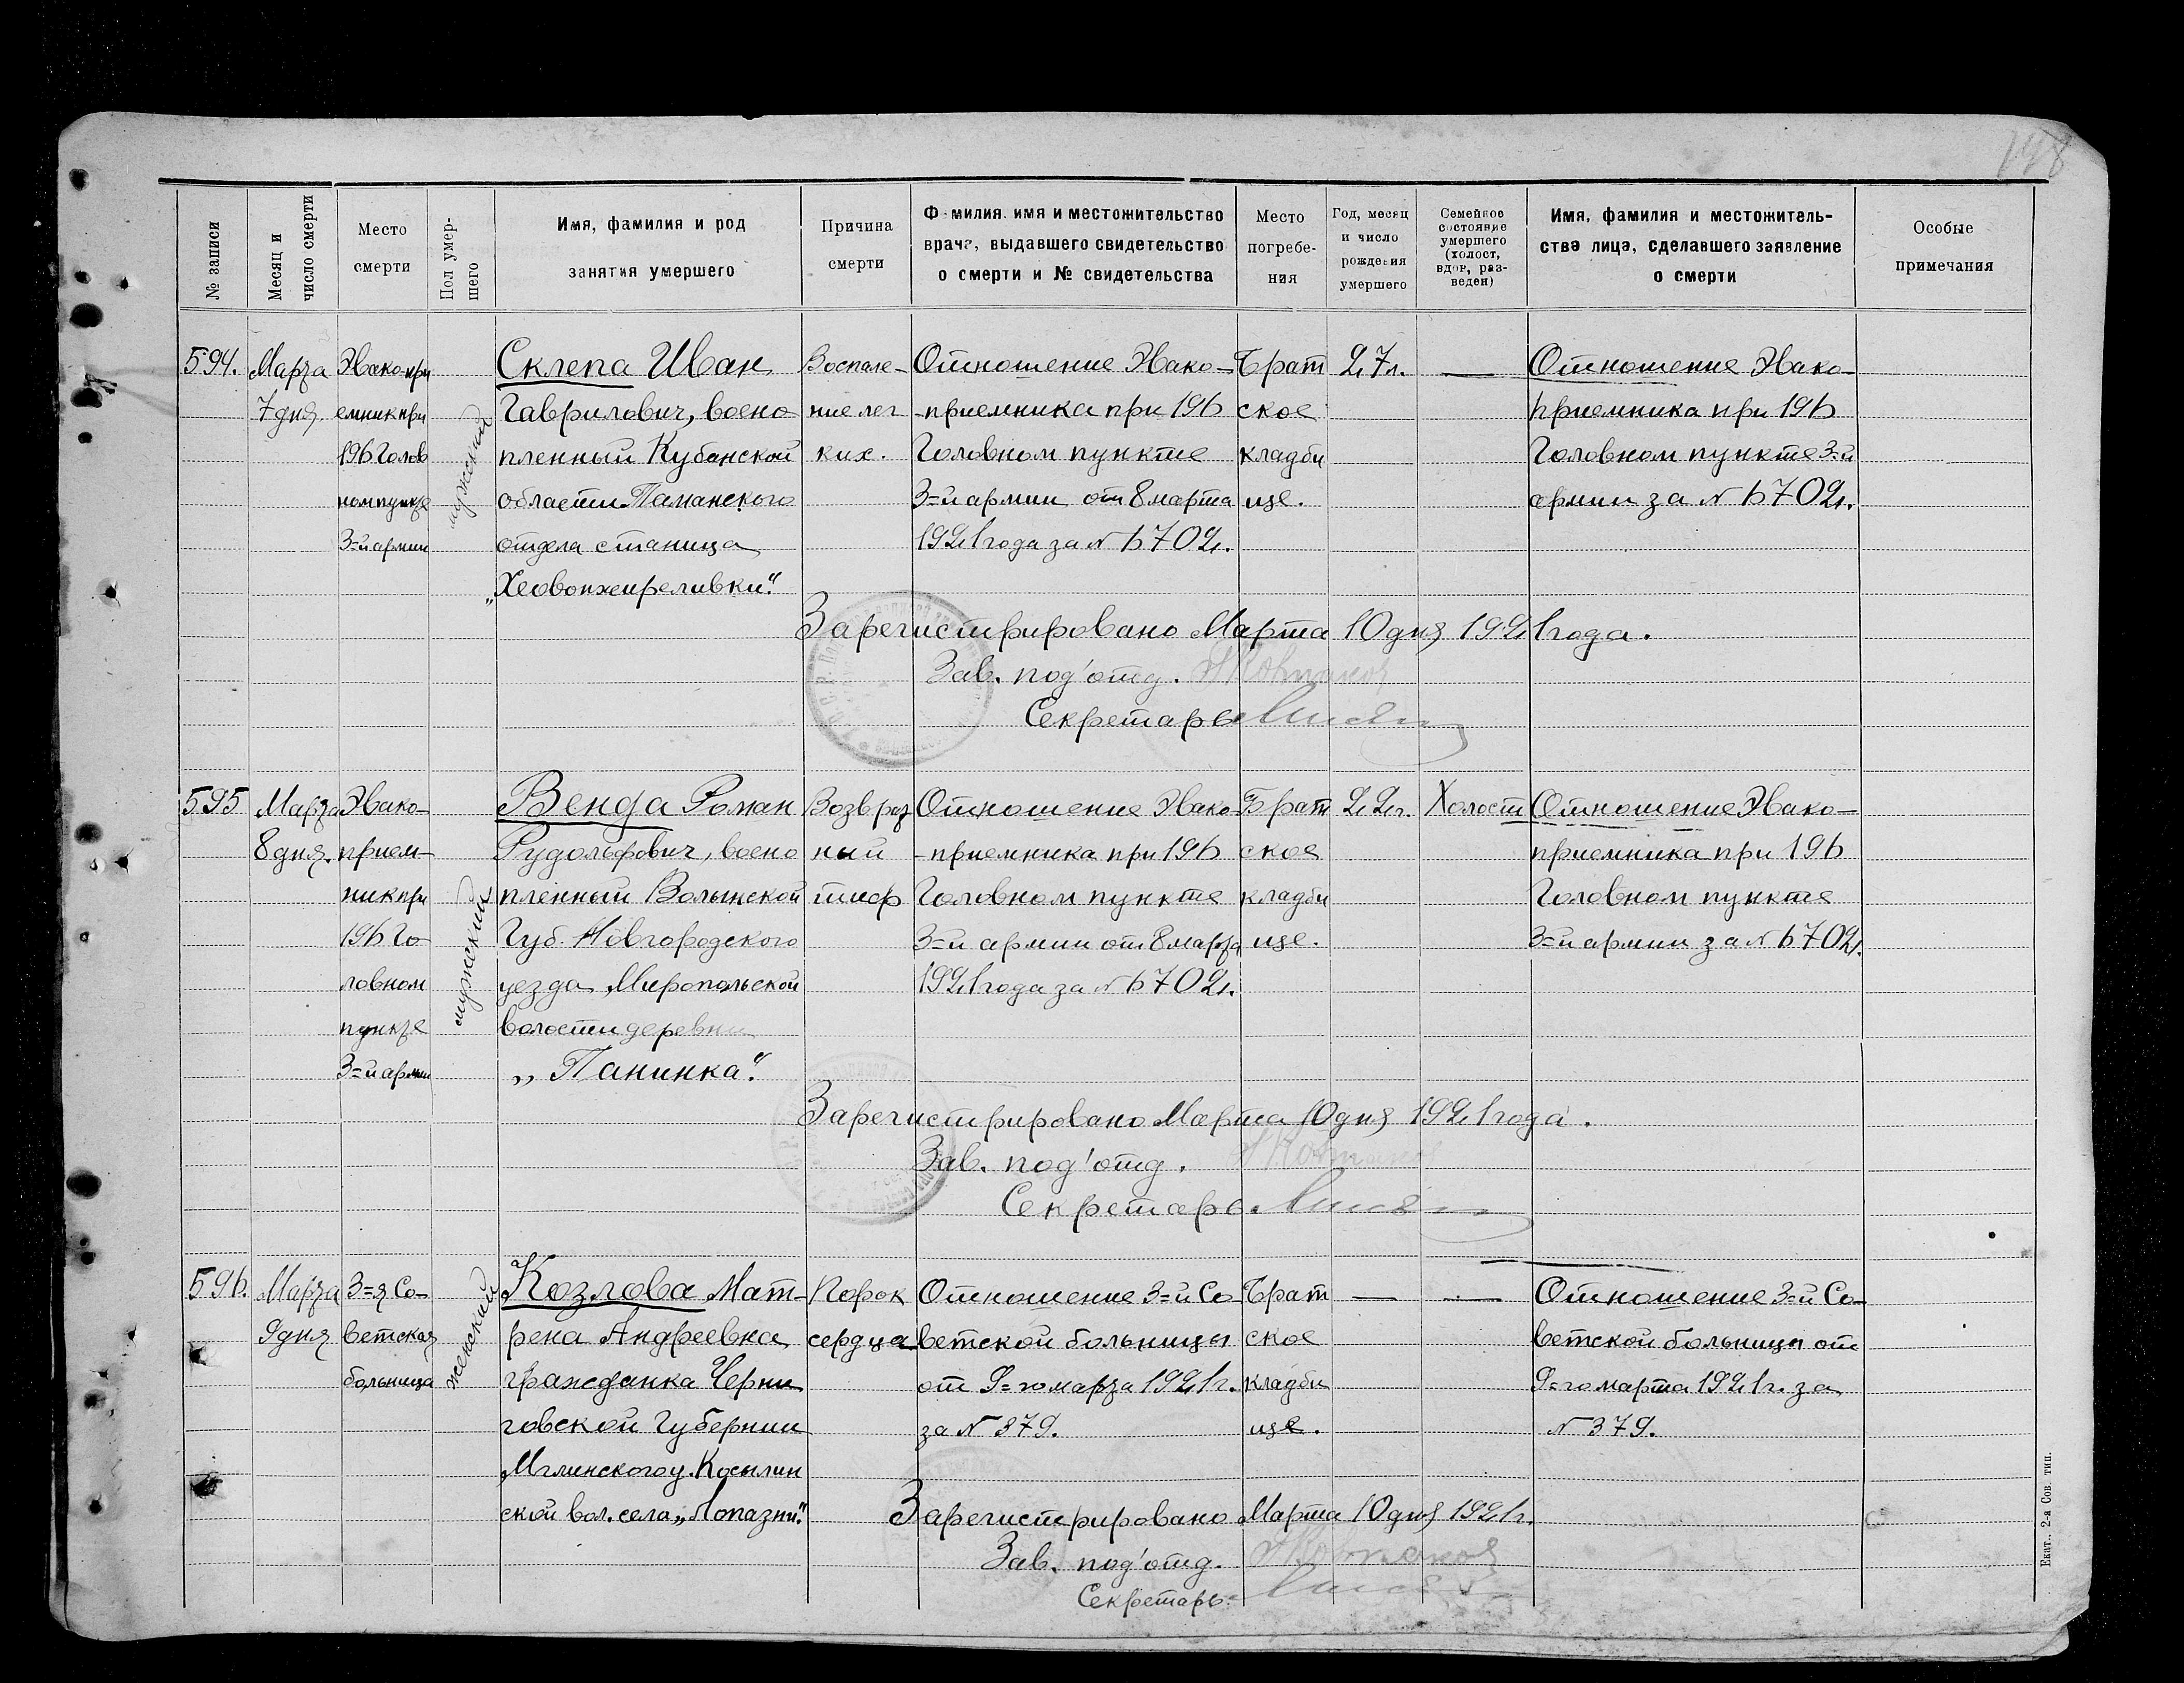 198
№ записи
Месяц и число смерти
Место смерти
Пол умершего
Имя, фамилия и род занятия умершего
Причина смерти
Фамилия, имя и местожительство врача, выдавшего свидетельство о смерти и № свидетельства
Место погребения
Год, месяц и число рождения умершего
Семейное состояние умершего (холост, вдов, разведен)
Имя, фамилия и местожительства лица, сделавшего заявление о смерти
Особые примечания
594.
Марта
7 дня
Эвакопри
емник при
196 Голов
ном пункте
3=й армии
мужский
Склепа Иван
Гаврилович, воено
пленный Кубанской
области Таманского
отдела станица
„Хеовонжеиреливки“.
Воспале-
ние лег
ких.
Отношение Эвако-
-приемника при 196
Головном пункте
3=й армии от 8 марта
1921 года за № 6702.
Брат
ское
кладби
ще.
27 л.
—
Отношение Эвако-
приемника при 196
Головном пункте 3=й
армии за № 6702.
Зарегистрировано Марта 10 дня 1921 года.
Зав. под'отд.
Секретарь
595
Марта
8 дня.
Эвако-
прием-
ник при
196 Го-
ловном
пункте
3=й армии
мужский
Венда Роман
Рудольфович, воено
пленный Волынской
Губ. Новгородского
уезда, Миропольской
волости деревни
„Панинка“.
Возврат
ный
тиф
Отношение Эвако
-приемника при 196
Головном пункте
3=й армии от 8 марта
1921 года за № 6702.
Брат
ское
кладби
ще.
22 г.
Холост
Отношение Эвако-
приемника при 196
Головном пункте
3=й армии за № 6702.
Зарегистрировано Марта 10 дня 1921 года.
Зав. под'отд.
Секретарь
596.
Марта
9 дня
3=я Со-
ветская
больница
женский
Козлова Мат-
рена Андреевна
гражданка Черни
говской Губернии
Мглинского у. Косылин
ской вол. села „Лопазни“.
Порок
сердца
Отношение 3=й Со-
ветской больницы
от 9=го марта 1921 г.
за № 379.
Брат
ское
кладби
ще.
—
—
Отношение 3=й Со-
ветской больницы от
9=го марта 1921 г. за
№ 379.
Зарегистрировано Марта 10 дня 1921 г.
Зав. под'отд.
Секретарь
Екат. 2-я Сов. тип.